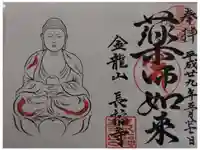 奉拝
平成廿九年五月廿七日
薬師如来
金龍山
長福寺